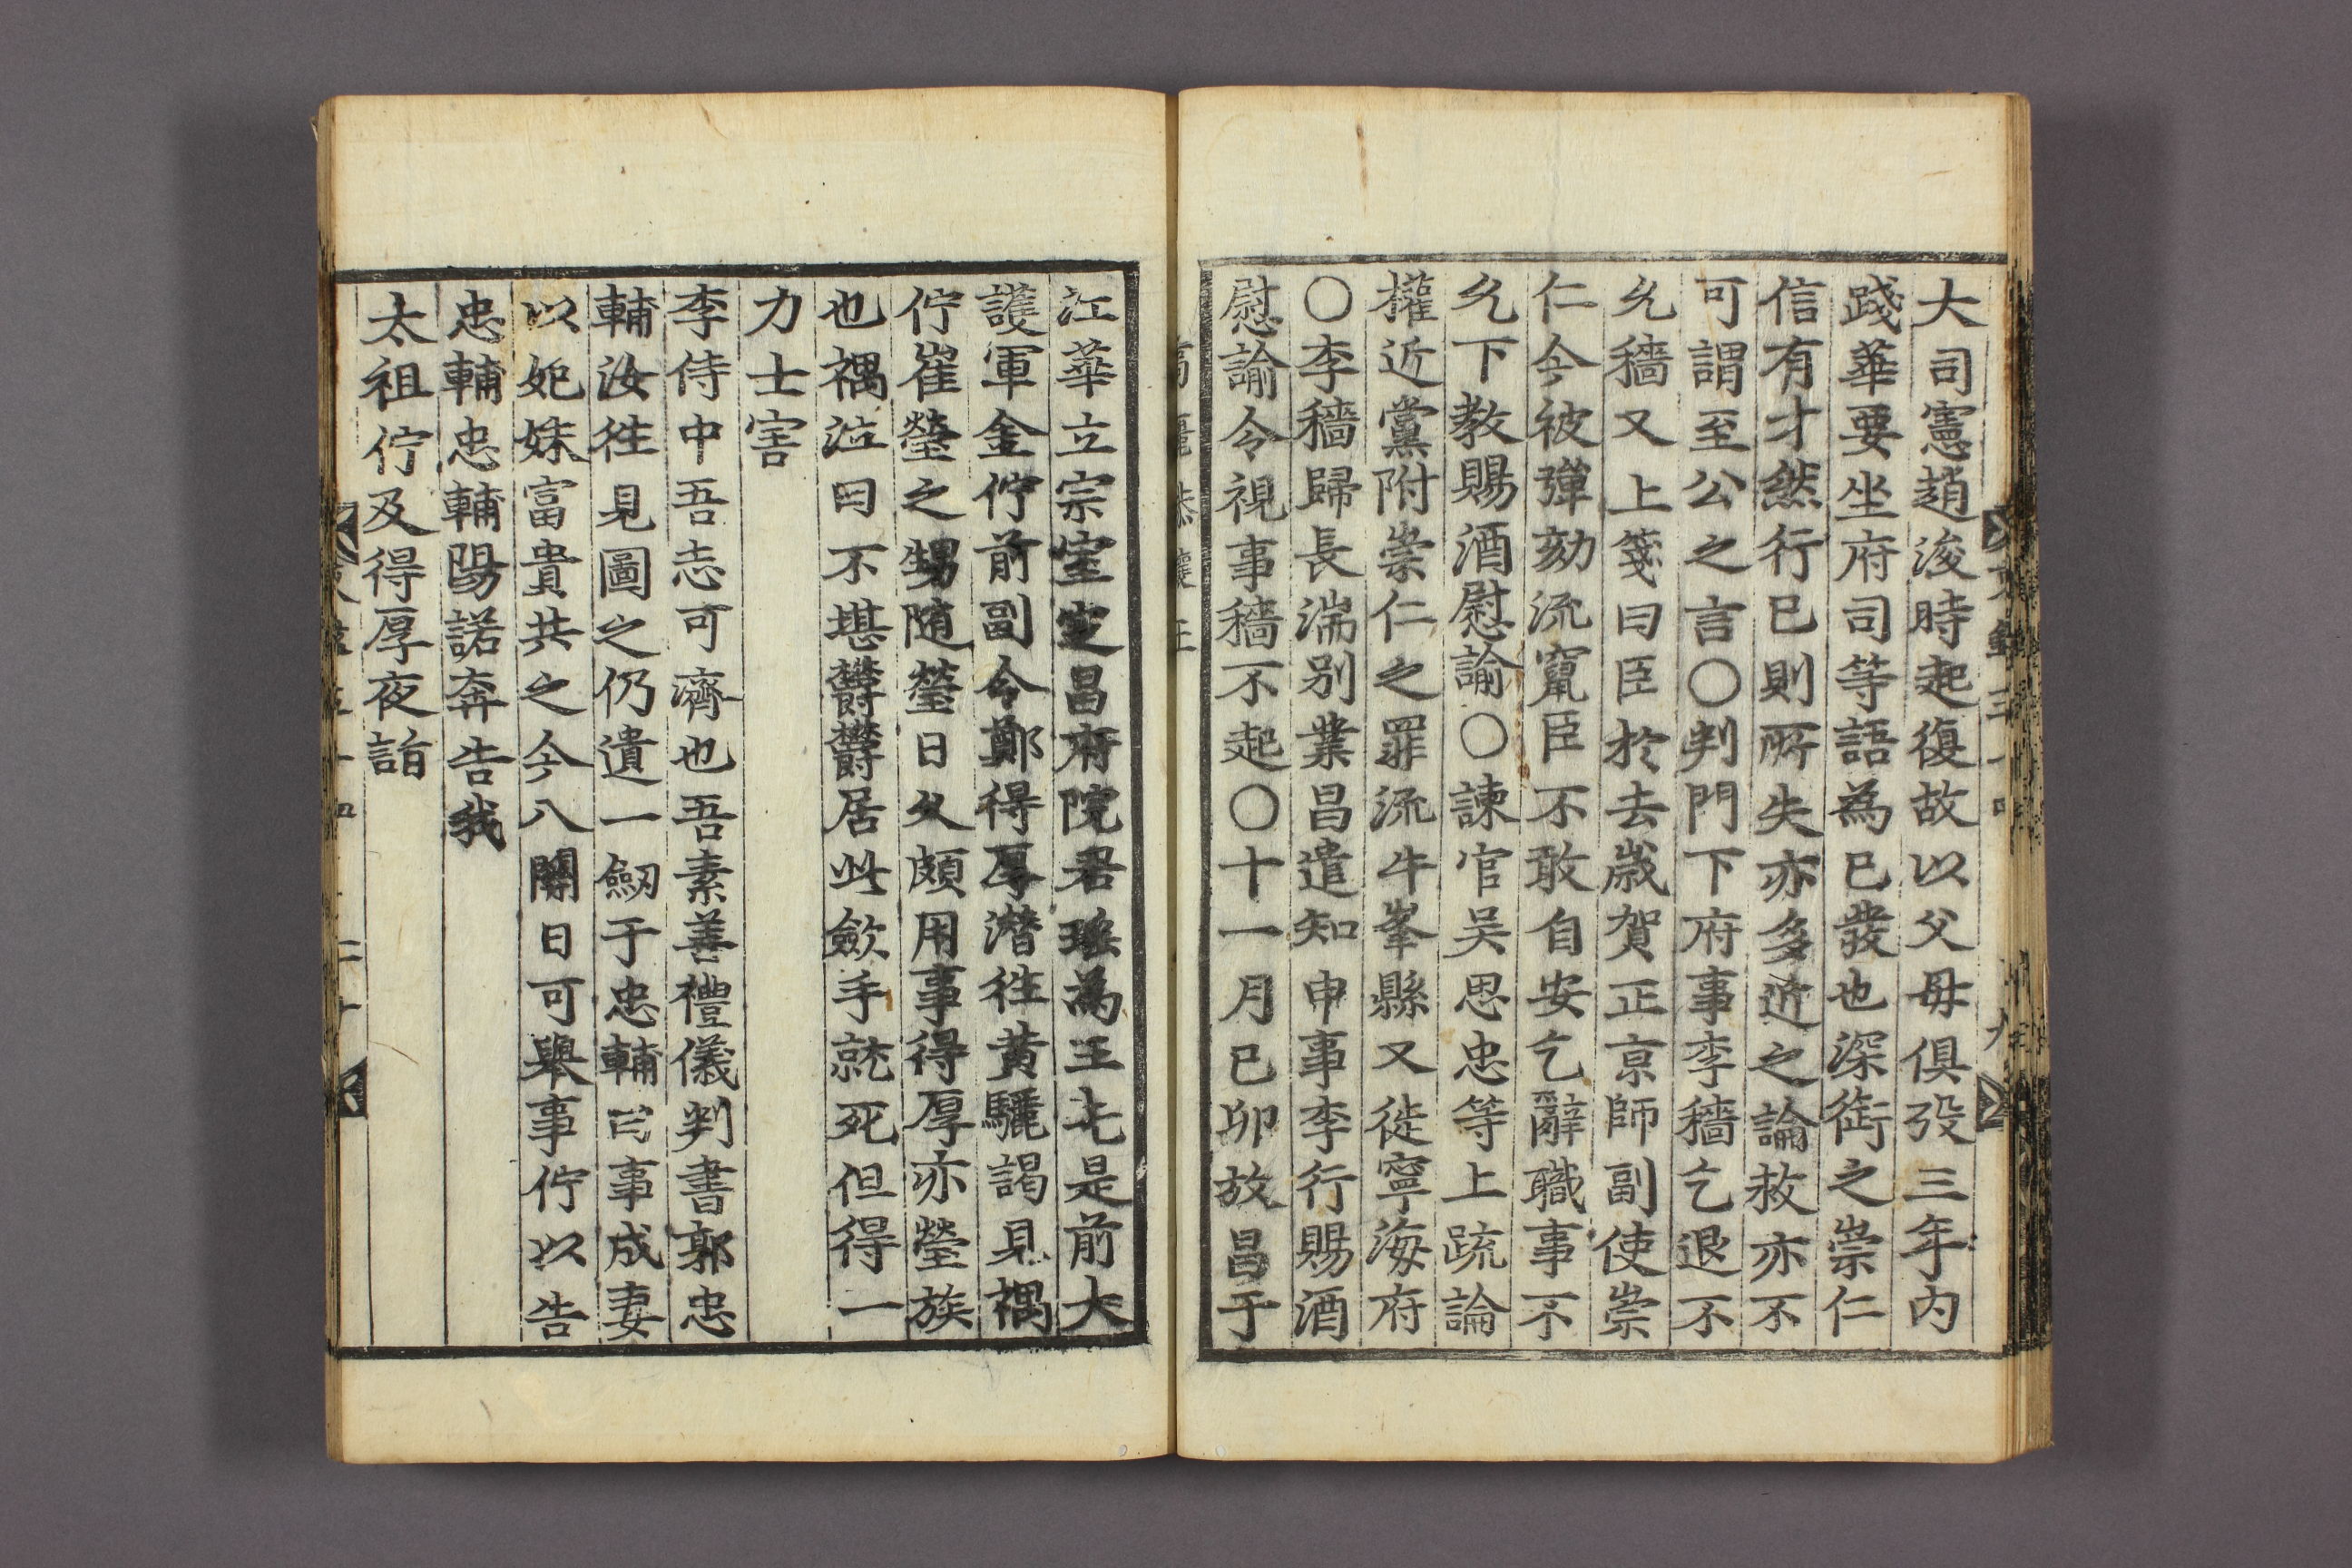 大司憲趙浚時起復故以父母俱歿三年內
踐華要坐府司等語爲已發也深銜之崇仁
信有才然行已則所失亦多近之論救亦不
可謂至公之言〇判門下府事李穡乞退不
允穡又上箋曰臣於去歲賀正京師副使崇
仁今被彈劾流竄臣不敢自安乞辭職事不
允下敎賜酒慰諭〇諫官吳思忠等上疏論
權近黨附崇仁之罪流牛峯縣又徙寧海府
〇李穡歸長湍別業昌遣知申事李行賜酒
慰諭令視事穡不起〇十一月已卯放昌于
江華立宗室定昌府院君瑤爲王先是前大
護軍金佇前副令鄭得厚潛徃黃驪謁見禑
佇崔瑩之甥隨瑩日久頗用事得厚亦瑩族
也禑泣曰不堪欝欝居此斂手就死但得一
力士害
李侍中吾志可濟也吾素善禮儀判書郭忠
輔汝徃見圖之仍遺一劒于忠輔曰事成妻
以妃妹富貴共之今八關日可擧事佇以告
忠輔忠輔陽諾奔告我
太祖佇及得厚夜詣